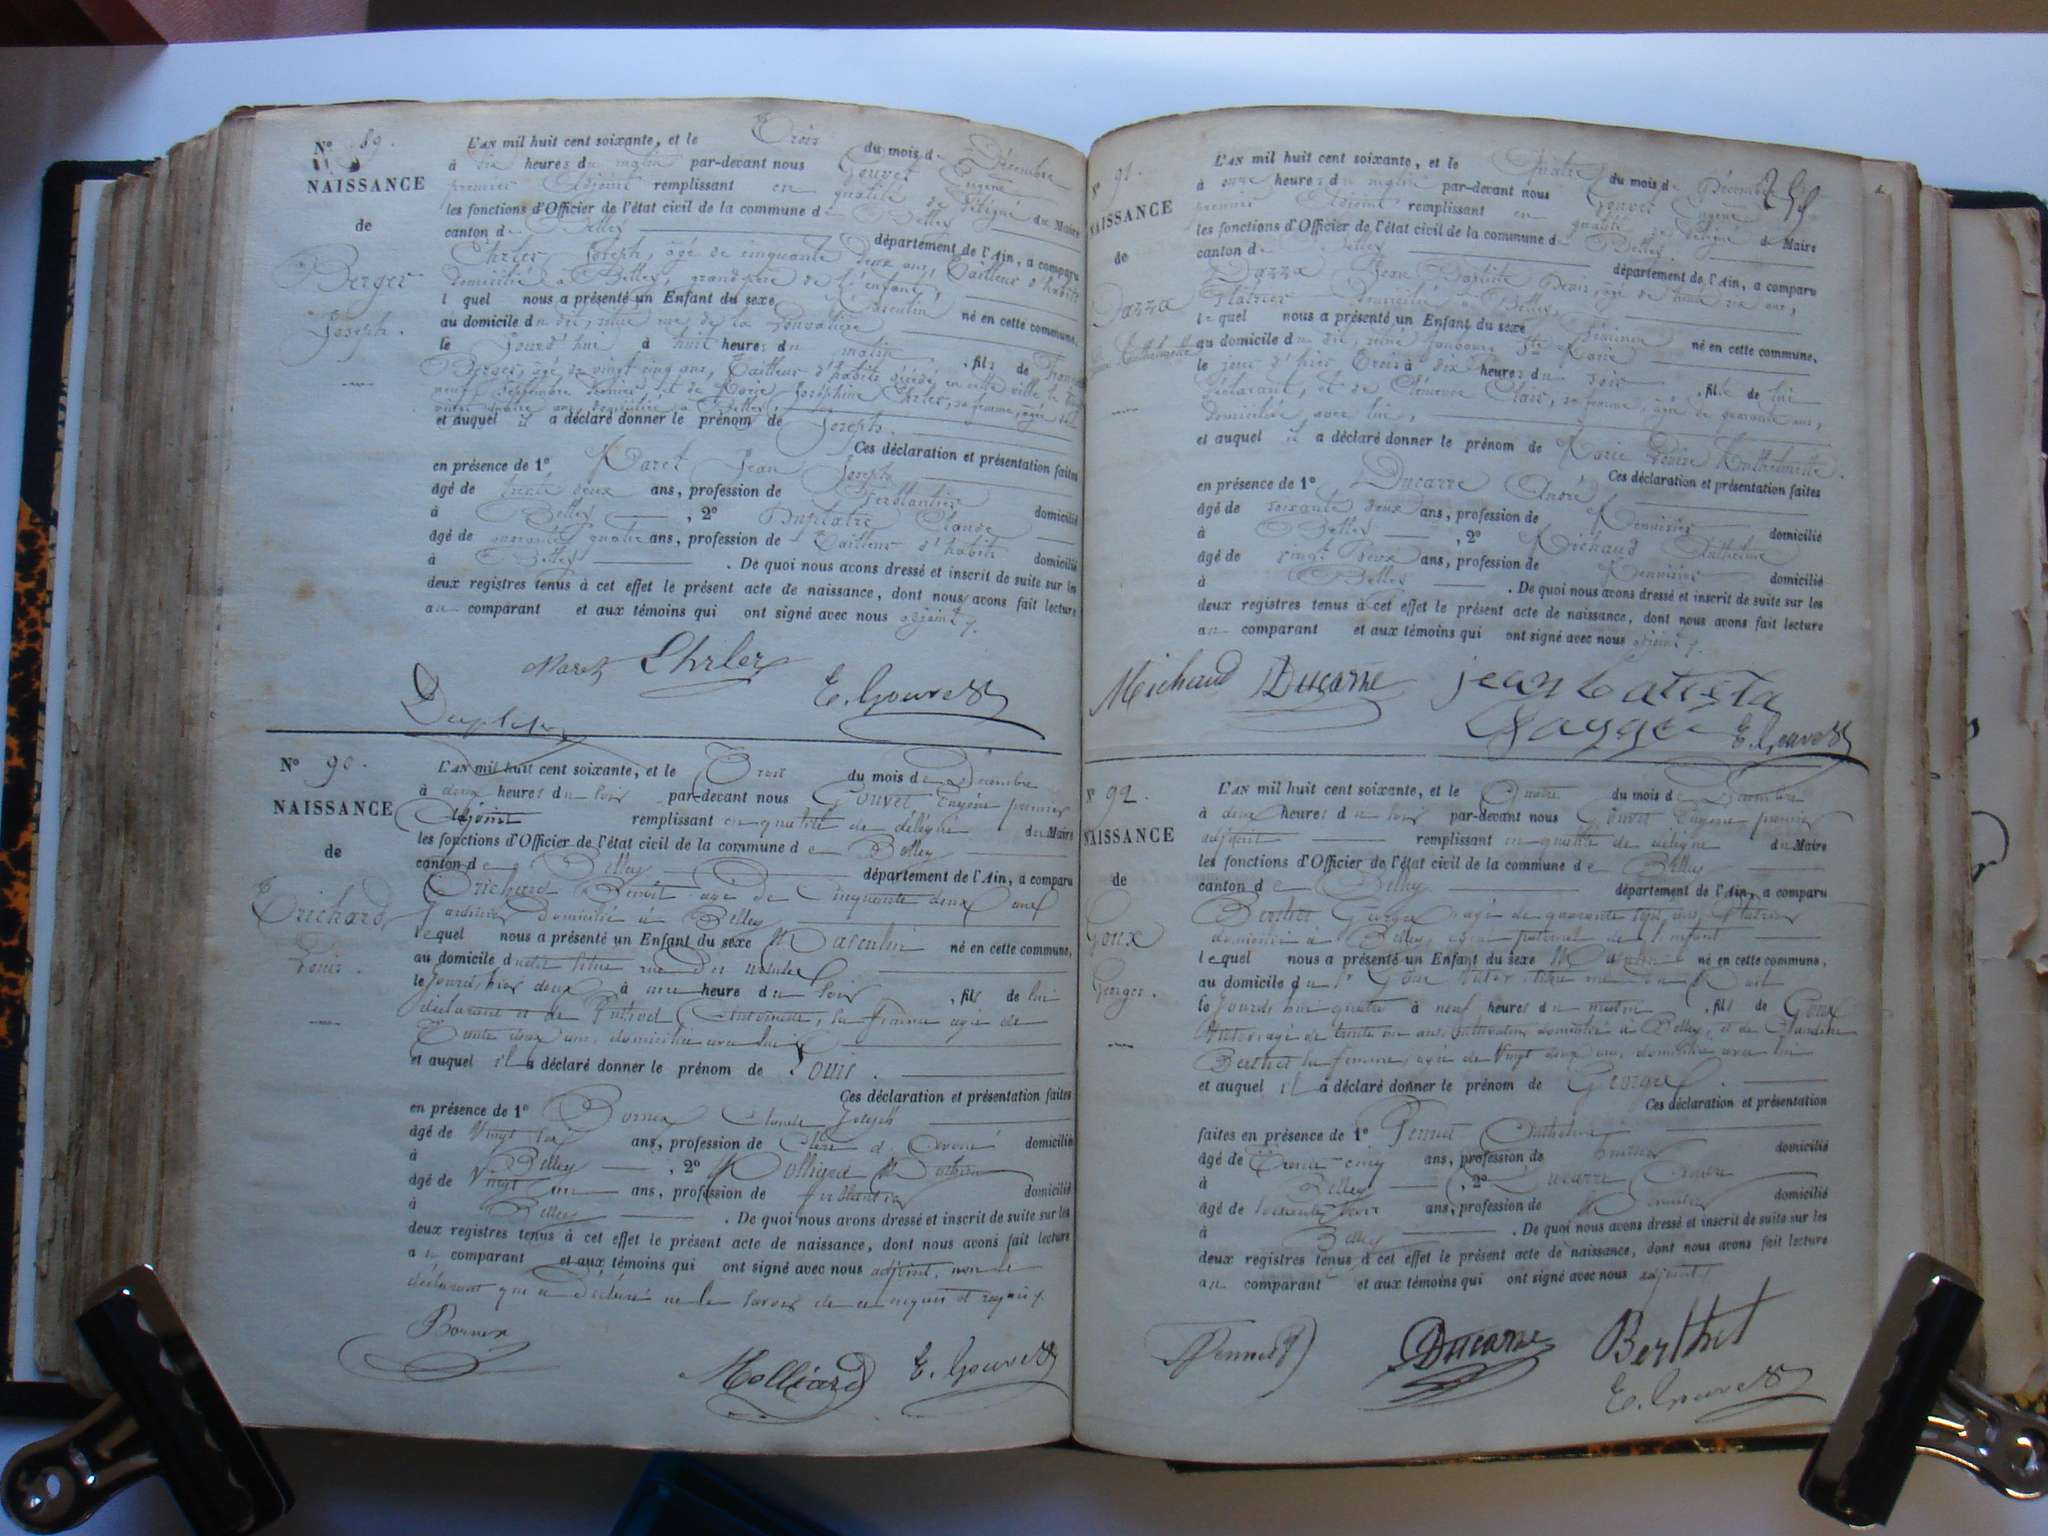 N° 89.
NAISSANCE
de
Berger
Joseph.
L'AN mil huit cent soixante, et le Trois du mois de Décembre
à dix heures du matin par-devant nous Gouvet Eugène
premier Adjoint remplissant en qualité de délégué du Maire
les fonctions d'Officier de l'état civil de la commune de Belley
canton de Belley département de l'Ain, a comparu
Ehrler Joseph, âgé de cinquante deux ans, Tailleur d'habits
domicilié à Belley, grand père de l'enfant,
lequel nous a présenté un Enfant du sexe Masculin né en cette commune,
au domicile du dit, situé rue de la
le Jourd'hui à huit heures du matin, fils de
Berger, âgé de vingt cinq ans, Tailleur d'habits décédé en cette ville le
neuf Septembre dernier, et de Marie Joséphine Ehrler, sa femme, âgée de
ans, domiciliée à Belley,
et auquel il a déclaré donner le prénom de Joseph.
Ces déclaration et présentation faites
en présence de 1° Maret Jean Joseph
âgé de trente deux ans, profession de Ferblantier domicilié
à Belley, 2° Duplatre Claude
âgé de quarante quatre ans, profession de Tailleur d'habits domicilié
à Belley. De quoi nous avons dressé et inscrit de suite sur les
deux registres tenus à cet effet le présent acte de naissance, dont nous avons fait lecture
au comparant et aux témoins qui ont signé avec nous adjoint.
Maret Ehrler
E. Gouvet
N° 90.
NAISSANCE
de
Trichard
Louis.
L'AN mil huit cent soixante, et le Trois du mois de Décembre
à deux heures du soir par-devant nous Gouvet Eugène premier
Adjoint remplissant en qualité de délégué du Maire
les fonctions d'Officier de l'état civil de la commune de Belley
canton de Belley département de l'Ain, a comparu
Trichard Benoît âgé de Cinquante deux ans
domicilié à Belley
lequel nous a présenté un Enfant du sexe Masculin né en cette commune,
au domicile du dit situé rue des
le Jourd'hier deux à une heure du soir, fils de lui
déclarant et de Antoinette, sa femme âgée de
Trente deux ans, domiciliée avec lui
et auquel il a déclaré donner le prénom de Louis.
Ces déclaration et présentation faites
en présence de 1° Bornex Claude Joseph
âgé de Vingt six ans, profession de Clerc d'Avoué domicilié
à Belley, 2° Molliard
âgé de Vingt ans, profession de ferblantier domicilié
à Belley. De quoi nous avons dressé et inscrit de suite sur les
deux registres tenus à cet effet le présent acte de naissance, dont nous avons fait lecture
au comparant et aux témoins qui ont signé avec nous adjoint, non le
déclarant qui a déclaré ne le savoir de ce enquis et requis.
Bornex
Molliard E. Gouvet
259
N° 91.
NAISSANCE
de
Dazza
L'AN mil huit cent soixante, et le Quatre du mois de Décembre
à onze heures du matin par-devant nous Gouvet Eugène
premier Adjoint remplissant en qualité de délégué du Maire
les fonctions d'Officier de l'état civil de la commune de Belley
canton de Belley département de l'Ain, a comparu
Dazza Jean Baptiste Denis, âgé de trente six ans,
Plâtrier domicilié à Belley,
lequel nous a présenté un Enfant du sexe féminin né en cette commune,
au domicile du dit, situé faubourg Ste Marie
le jour d'hier Trois à dix heures du soir, fille de lui
déclarant, et de Clémence Clair, sa femme, âgée de quarante ans,
domiciliée avec lui,
et auquel il a déclaré donner le prénom de Marie Louise Anthelmette.
Ces déclaration et présentation faites
en présence de 1° Ducarre André
âgé de soixante deux ans, profession de Menuisier domicilié
à Belley, 2° Michaud Anthelme
âgé de vingt deux ans, profession de Menuisier domicilié
à Belley. De quoi nous avons dressé et inscrit de suite sur les
deux registres tenus à cet effet le présent acte de naissance, dont nous avons fait lecture
au comparant et aux témoins qui ont signé avec nous adjoint.
Michaud Ducarre jean batista
E. Gouvet
N° 92.
NAISSANCE
de
Goux
Georges.
L'AN mil huit cent soixante, et le Quatre du mois de Décembre
à deux heures du soir par-devant nous Gouvet Eugène premier
adjoint remplissant en qualité de délégué du Maire
les fonctions d'Officier de l'état civil de la commune de Belley
canton de Belley département de l'Ain, a comparu
Berthet George âgé de quarante sept ans, Plâtrier
domicilié à Belley, ayeul paternel de l'enfant
lequel nous a présenté un Enfant du sexe Masculin né en cette commune,
au domicile du Sr Goux Victor situé rue du
le Jourd'hui quatre à neuf heures du matin, fils de Goux
Victor, âgé de trente un ans, Cultivateur, domicilié à Belley, et de Claudine
Berthet sa femme, âgée de Vingt deux ans, domiciliée avec lui
et auquel il a déclaré donner le prénom de Georges.
Ces déclaration et présentation
faites en présence de 1° Pernet Anthelme
âgé de Trente cinq ans, profession de domicilié
à Belley, 2° Ducarre André
âgé de soixante deux ans, profession de Menuisier domicilié
à Belley. De quoi nous avons dressé et inscrit de suite sur les
deux registres tenus à cet effet le présent acte de naissance, dont nous avons fait lecture
au comparant et aux témoins qui ont signé avec nous adjoint
Ducarre Berthet
E. Gouvet